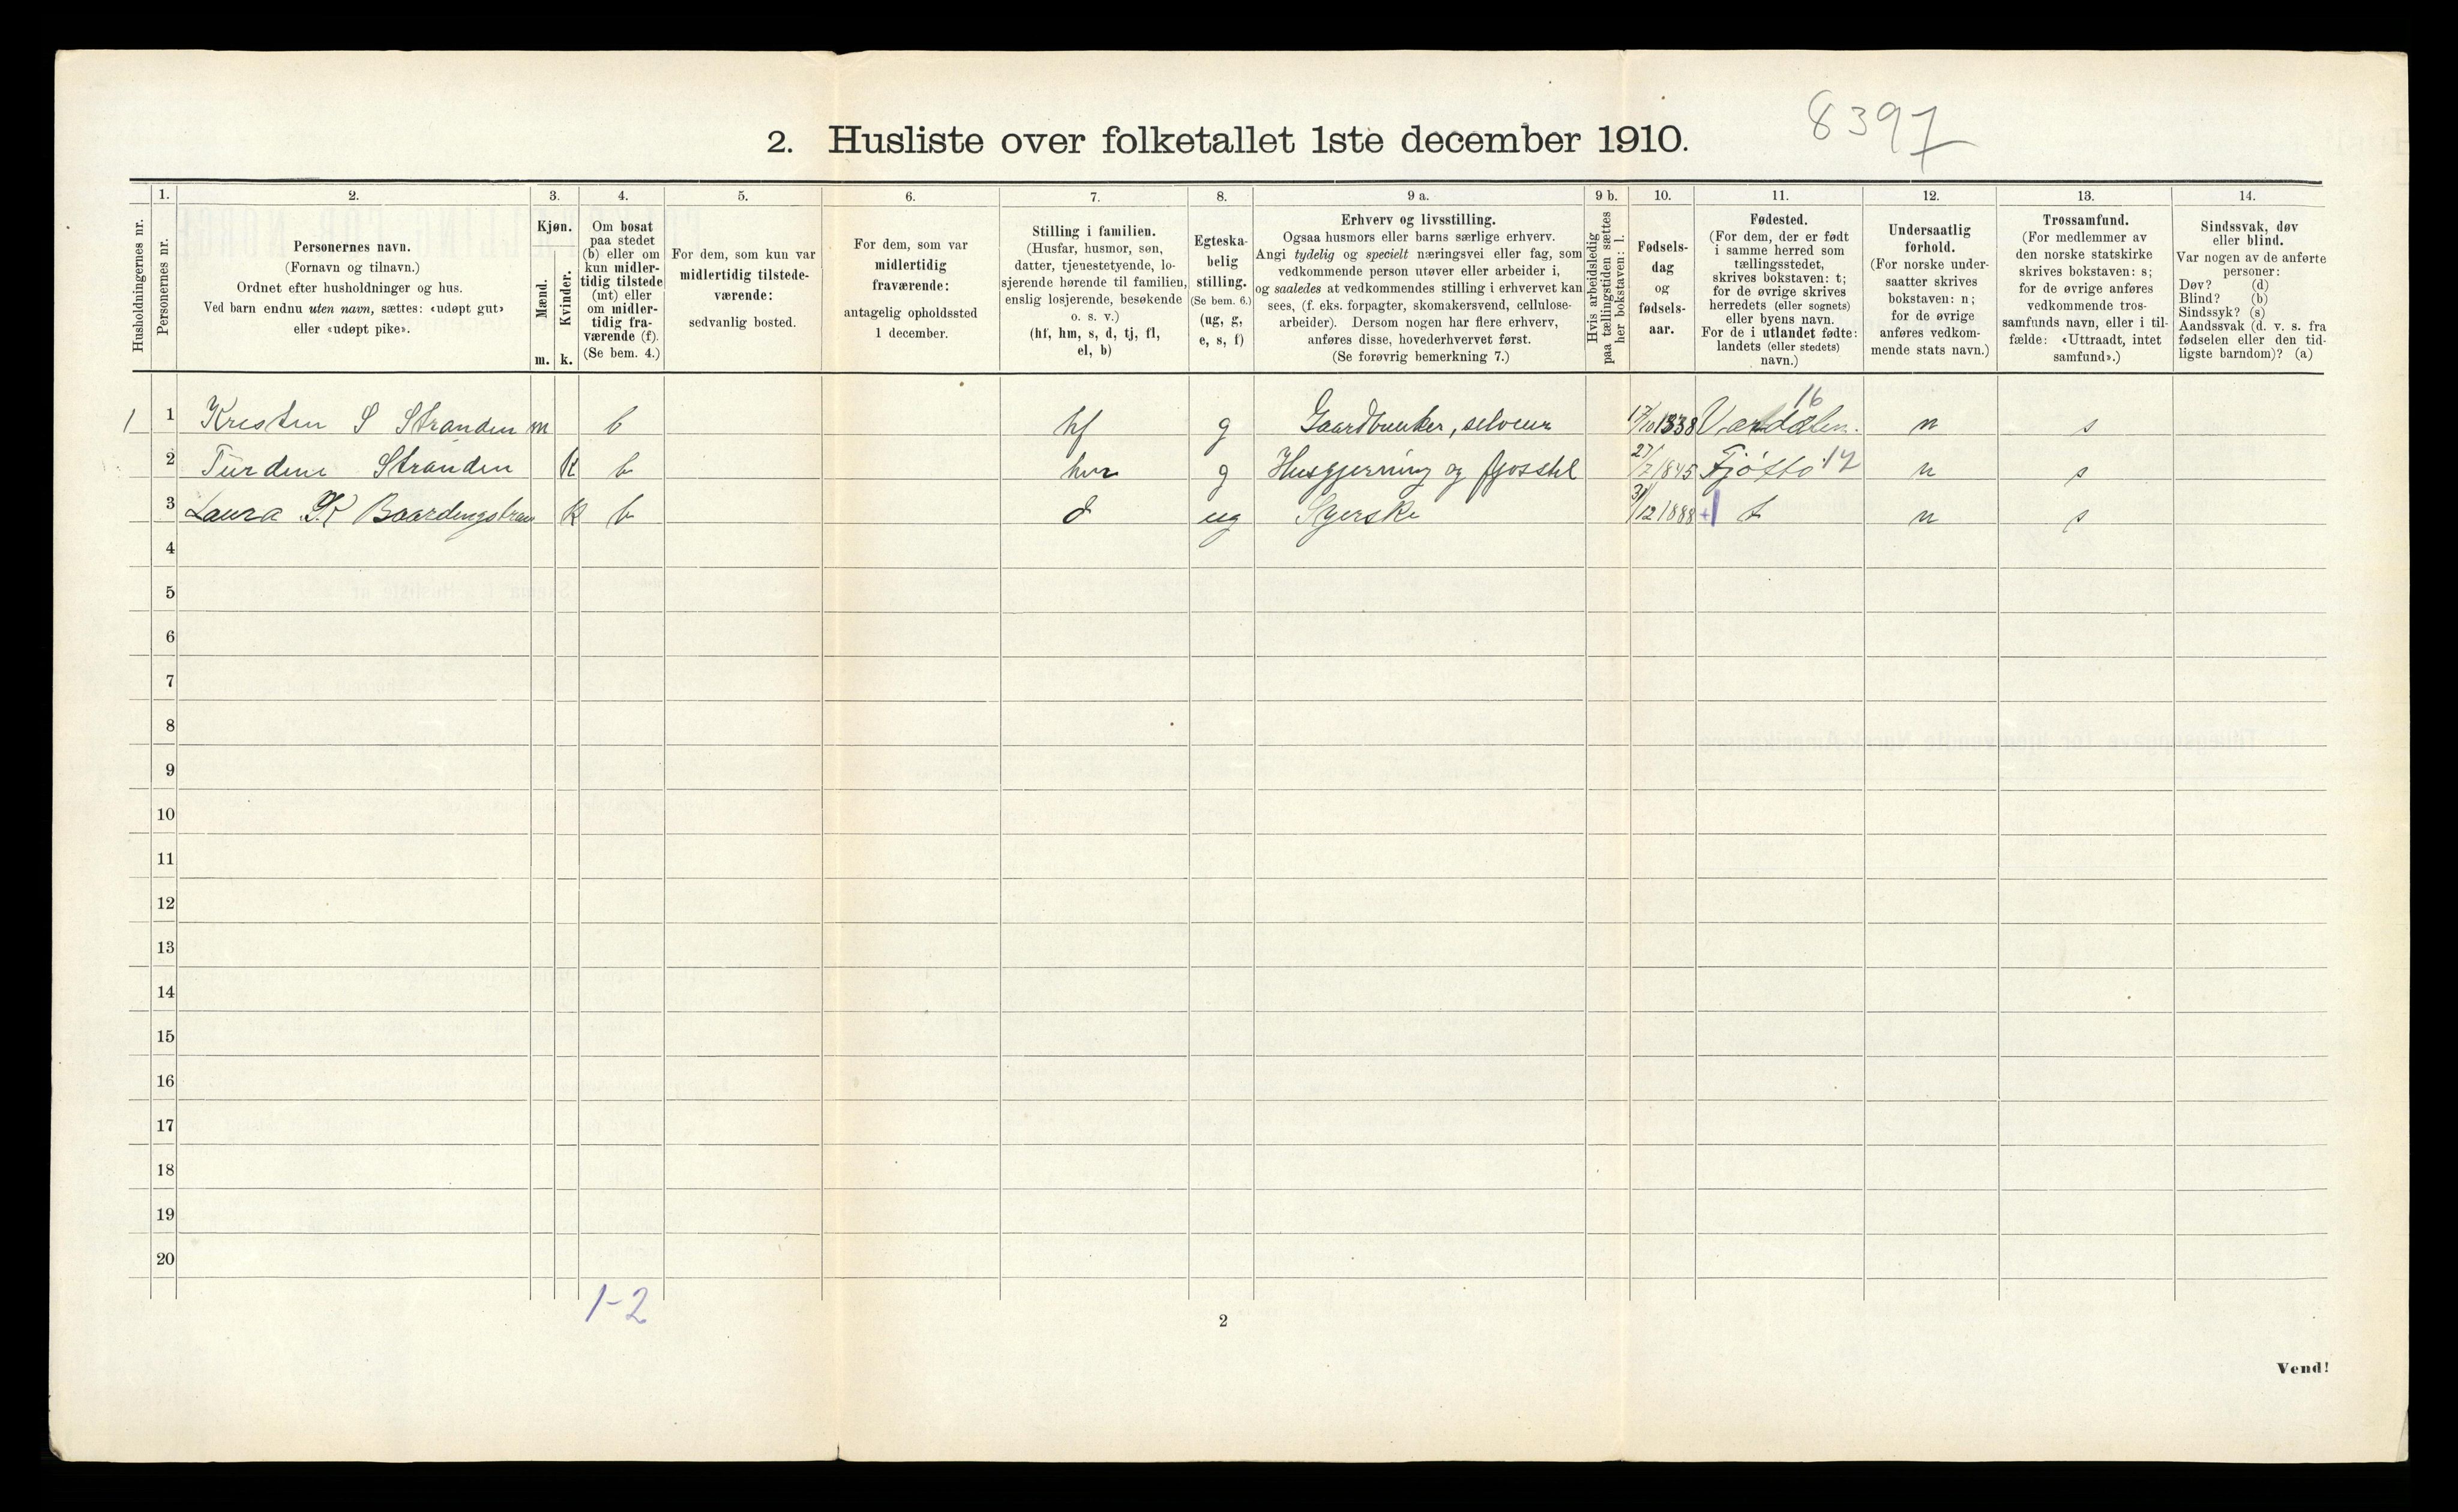 8397
2. Husliste over folketallet 1ste december 1910.
Husholdningernes nr.
1.
Personernes nr.
2.
Personernes navn.
(Fornavn og tilnavn.)
Ordnet efter husholdninger og hus.
Ved barn endnu uten navn, sættes: «udøpt gut»
eller «udøpt pike».
3.
Kjøn.
Mænd.
Kvinder.
m. k.
4.
Om bosat
paa stedet
(b) eller om
kun midler-
tidig tilstede
(mt) eller
om midler-
tidig fra-
værende (f).
(Se bem. 4.)
5.
For dem, som kun var
midlertidig tilstede-
værende:
sedvanlig bosted.
6.
For dem, som var
midlertidig
fraværende:
antagelig opholdssted
1 december.
7.
Stilling i familien.
(Husfar, husmor, søn,
datter, tjenestetyende, lo-
sjerende hørende til familien,
enslig losjerende, besøkende
o. s. v.)
(hf, hm, s, d, tj, fl,
el, b)
8.
Egteska-
belig
stilling.
(Se bem. 6.)
(ug, g,
e, s, f)
9 a.
Erhverv og livsstilling.
Ogsaa husmors eller barns særlige erhverv.
Angi tydelig og specielt næringsvei eller fag, som
vedkommende person utøver eller arbeider i,
og saaledes at vedkommendes stilling i erhvervet kan
sees, (f. eks. forpagter, skomakersvend, cellulose-
arbeider). Dersom nogen har flere erhverv,
anføres disse, hovederhvervet først.
(Se forøvrig bemerkning 7.)
9 b.
Hvis arbeidsledig
paa tællingstiden sættes
her bokstaven: l.
10.
Fødsels-
dag
og
fødsels-
aar.
11.
Fødested.
(For dem, der er født
i samme herred som
tællingsstedet,
skrives bokstaven: t;
for de øvrige skrives
herredets (eller sognets)
eller byens navn.
For de i utlandet fødte:
landets (eller stedets)
navn.)
12.
Undersaatlig
forhold.
(For norske under-
saatter skrives
bokstaven: n;
for de øvrige
anføres vedkom-
mende stats navn.)
13.
Trossamfund.
(For medlemmer av
den norske statskirke
skrives bokstaven: s;
for de øvrige anføres
vedkommende tros-
samfunds navn, eller i til-
fælde: «Uttraadt, intet
samfund».)
14.
Sindssvak, døv
eller blind.
Var nogen av de anførte
personer:
Døv? (d)
Blind? (b)
Sindssyk? (s)
Aandssvak (d. v. s. fra
fødselen eller den tid-
ligste barndom)? (a)
16
1 1 Kresten S Stranden m b hf g Gaardbruker, selveier 1838 Værdalen. n s
2 Stranden k b hm g Husgjerning og fjøsstel 27/7 1845 17 n s
3 Laura k b d ug Syerske 31/12 1888 t n s
4
5
6
7
8
9
10
11
12
13
14
15
16
17
18
19
20
1-2
2
Vend!